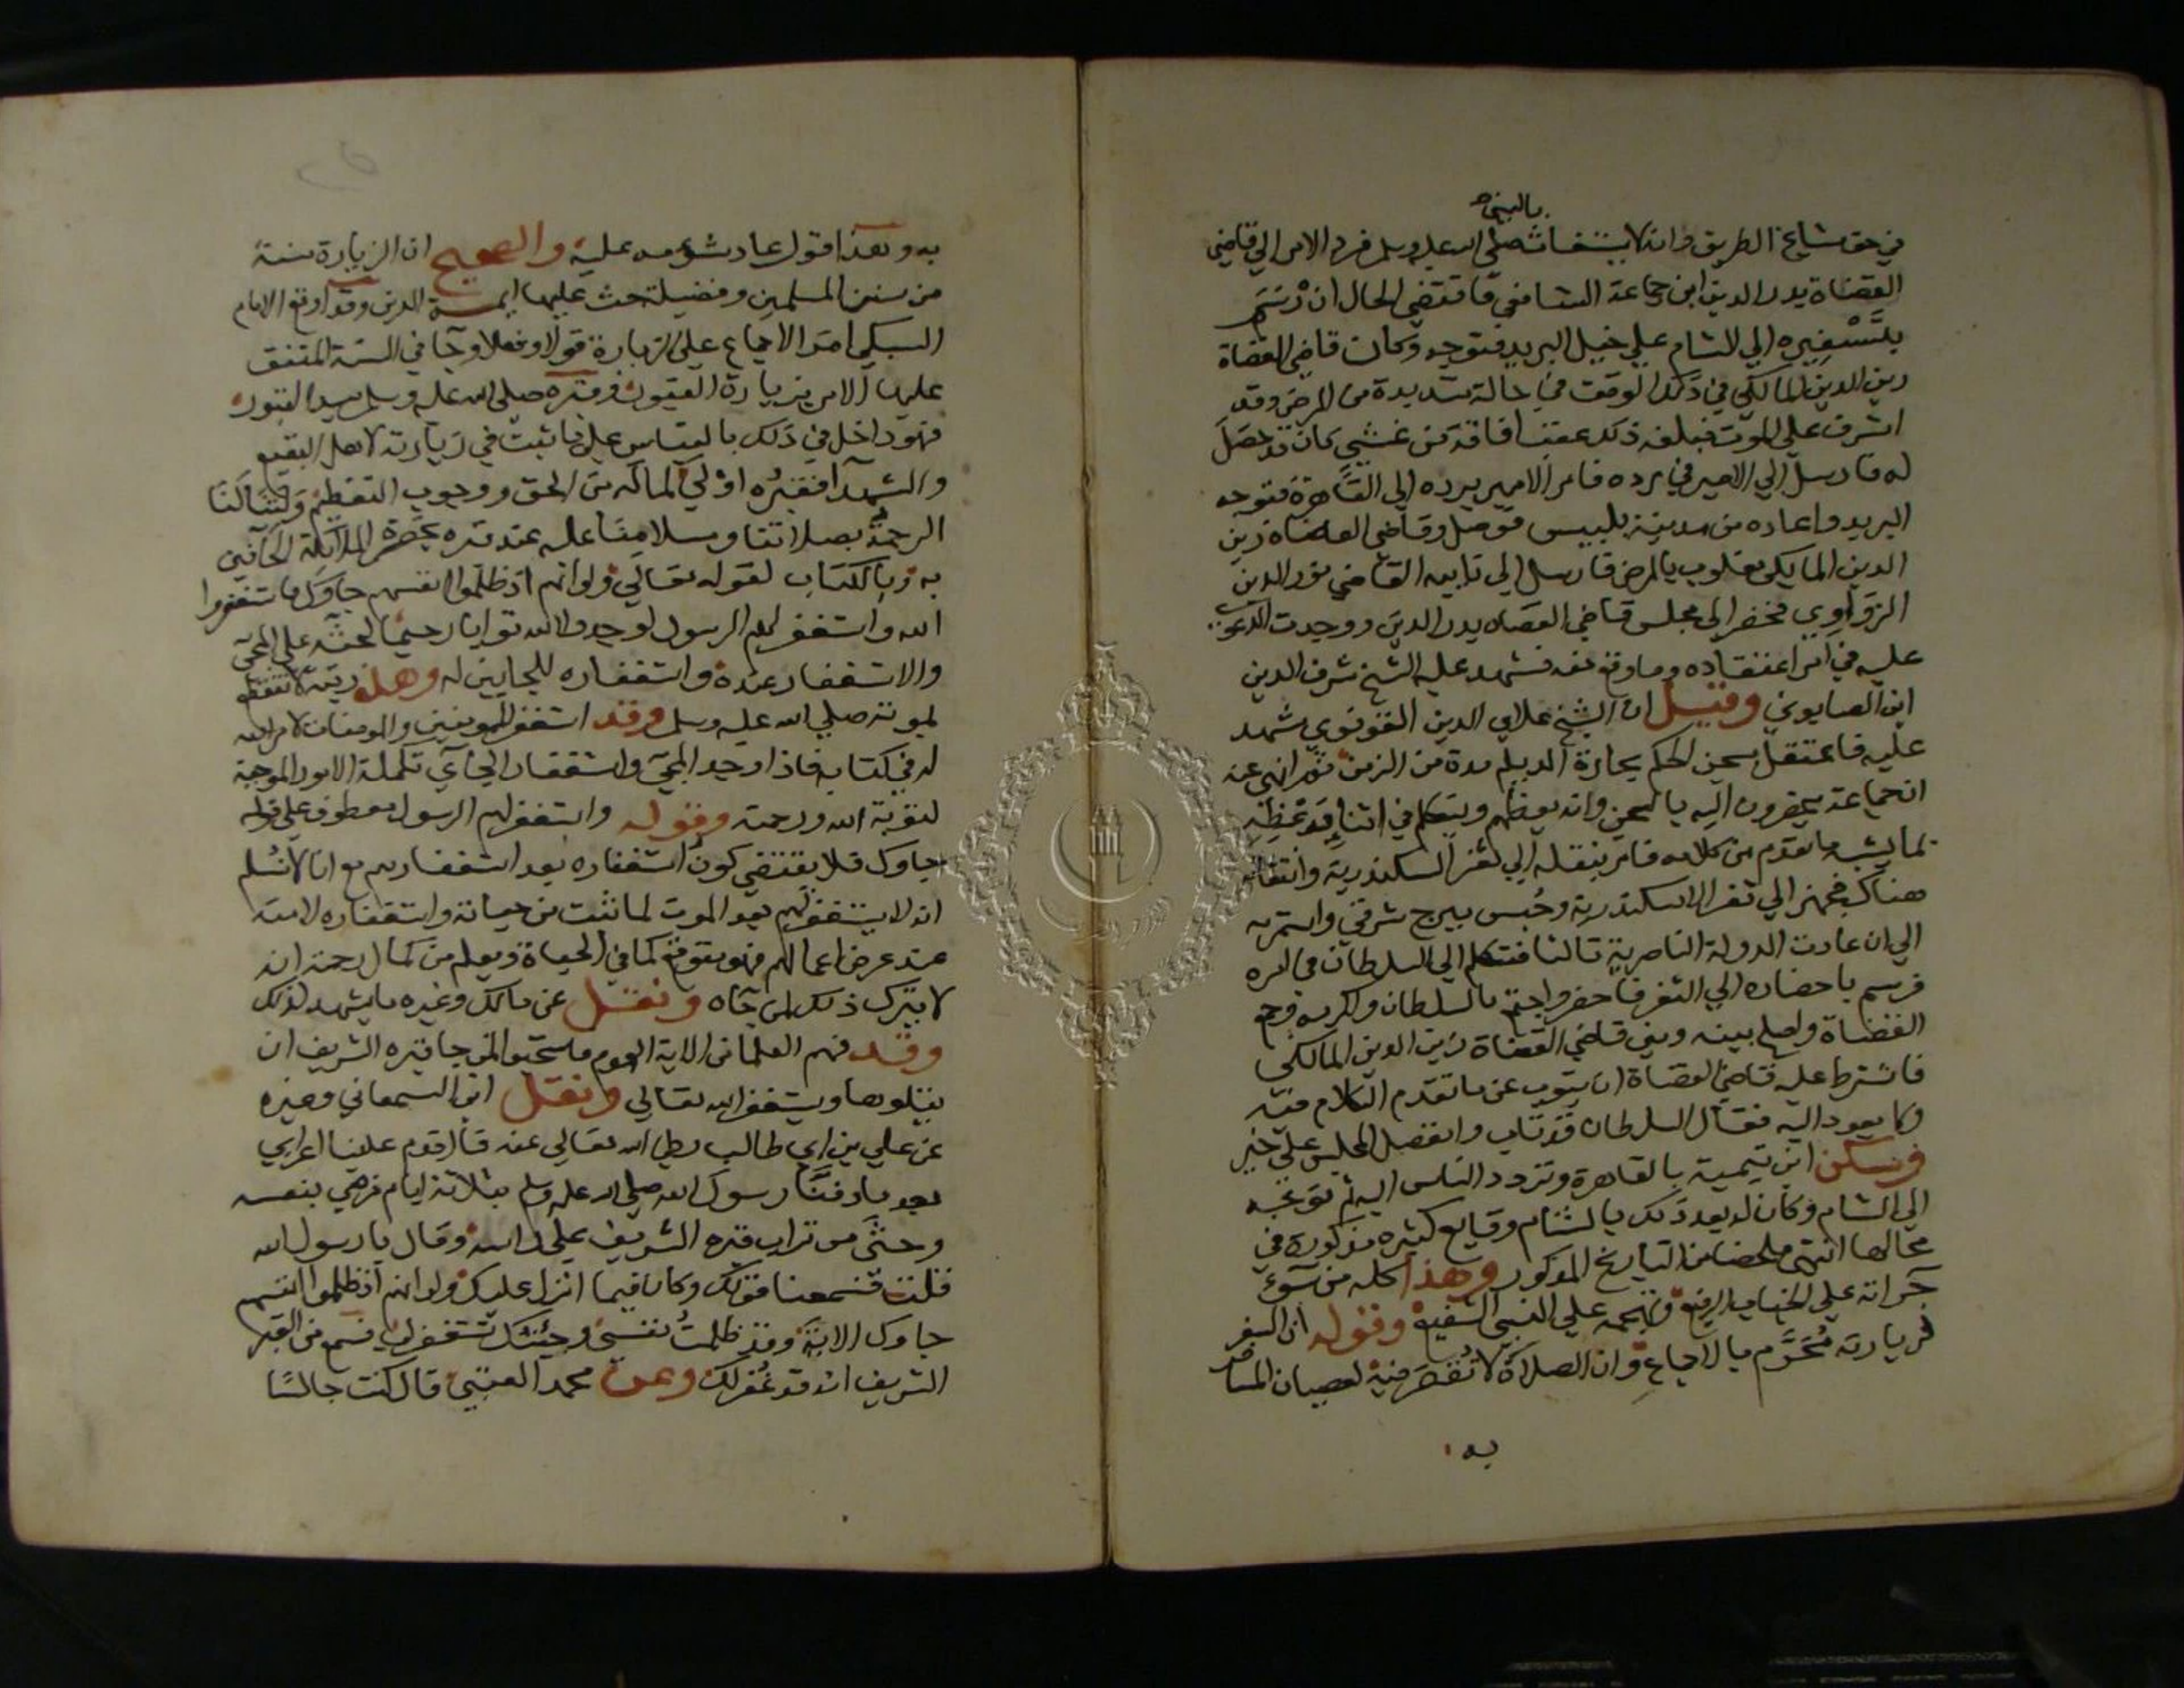 بالنبي صح
في حق مشايخ الطريق وانه لا يستغاث صلى الله عليه وسلم فرد الامر الي قاضي
القضاة بدر الدين ابن جماعة الشافعي فاقتضي الحال ان رسم
بتسفيره الي الشام علي خيل البريد فتوجه وكان قاضي القضاة
زين الدين المالكي في ذلك الوقت في حالة شديدة من المرض وقد
اشرف علي الموت فبلغه ذلك عقب افاقة من غشي كان قد حصل
له فارسل الي الامير في رده فامر الامير برده الي القاهرة فتوجه
البريد واعاده من مدينة بلبيس فوصل وقاضي القضاة زين
الدين المالكي مغلوب بالمرض فارسل الي نايبه القاضي نور الدين
الزواوي فحضر الي مجلس قاضي القضاه بدر الدين ووجدت الدعوي
عليه في امر اعتقاده وما وقع منه فشهد عليه الشيخ شرف الدين
ابن الصابوني وقيل ان الشيخ علاي الدين القونوي شهد
عليه فاعتقل بسجن الحكم بحارة الديلم مدة من الزمن ثم انهي عنه
ان جماعة يحضرون اليه بالسجن وانه يعظهم ويتكلم في اثنا وعظه
بما يشبه ما تقدم من كلامه فامر بنقله الي ثغر السكندرية واعتقاله
هناك فجهز الي ثغر الاسكندرية وحبس ببرج شرقي واستمر به
الي ان عادت الدولة الناصرية ثالثا فتكلم الي السلطان في امره
فرسم باحضاره الي الثغر فاحضر واجتمع بالسلطان واكرمه وجمع
القضاة واصلح بينه وبين قاضي القضاة زين الدين المالكي
فاشترط عليه قاضي القضاة ان يتوب عن ما تقدم الكلام فيه
ولا يعود اليه فقال السلطان قد تاب وانفصل المجلس علي خير
وسكن ابن تيمية بالقاهرة وتردد الناس اليه ثم توجه
الي الشام وكان له بعد ذلك بالشام وقايع كثيره مذكورة في
محالها انتهى ملخصا من التاريخ المذكور وهذا كله من سوء
جراته علي الجناب الرفيع وتهجمه علي النبي الشفيع وقوله ان السفر
لزيارته محرم بالاجماع وان الصلاة لا تقصر فيه لعصيان المسافر
به
به وهذا قول عاد شومه عليه والصحيح ان الزيارة سنة
من سنن المسلمين وفضيلة حث عليها ايمة الدين وقد اوقع الامام
السبكي امر الاجماع علي الزيارة قولا وفعلا وجا في السنة المتفق
عليها الامر بزيارة القبور وقبره صلي الله عليه وسلم سيد القبور
فهو داخل في ذلك بالقياس علي ما ثبت في زيارته لاهل البقيع
والشهدآ فقبره اولي لماله من الحق ووجوب التعظيم ولتنالنا
الرحمة بصلاتنا وسلامنا عليه عند قبره بحضرة الملائكة الحافين
به وبالكتاب لقوله تعالي ولو انهم اذ ظلموا انفسهم جاوك فاستغفروا
الله واستغفر لهم الرسول لوجدوا الله توابا رحيما لحثه علي المجي
والاستغفار عنده واستغفاره للجايين له وهذه رتبة لا تنقطع
لموته صلي الله عليه وسلم وقد استغفر للمومنين والمومنات لامر الله
له في كتابه فاذا وجد المجي واستغفار الجآي تكملة الامور الموجبة
لتوبة الله ورحمته وقوله واستغفر لهم الرسول معطوف علي قوله
جاوك فلا يقتضي كون استغفاره بعد استغفارهم مع انا لا نسلم
انه لا يستغفر لهم بعد الموت لما ثبت من حياته واستغفاره لامته
عند عرض اعمالهم فهو متوقع كما في الحياة ويعلم من كمال رحمته انه
لا يترك ذلك لمن جآه ونقل عن مالك وغيره ما يشهد لذلك
وقد فهم العلما من الاية العموم فاستحبوا لمن جا قبره الشريف ان
يتلوها ويستغفر الله تعالي ونقل ابن السمعاني وغيره
عن علي بن ابي طالب رضي الله تعالي عنه قال قدم علينا اعرابي
بعد ما دفنا رسول الله صلي الله عليه وسلم بثلاثة ايام فرمي بنفسه
وحثى من تراب قبره الشريف علي راسه وقال يا رسول الله
قلت فسمعنا قولك وكان فيما انزل عليك ولو انهم اذ ظلموا انفسهم
جاوك الاية وقد ظلمت نفسي وجئتك تستغفر لي فسمع من القبر
الشريف انه قد غفر لك وعن محمد العتبي قال كنت جالسا